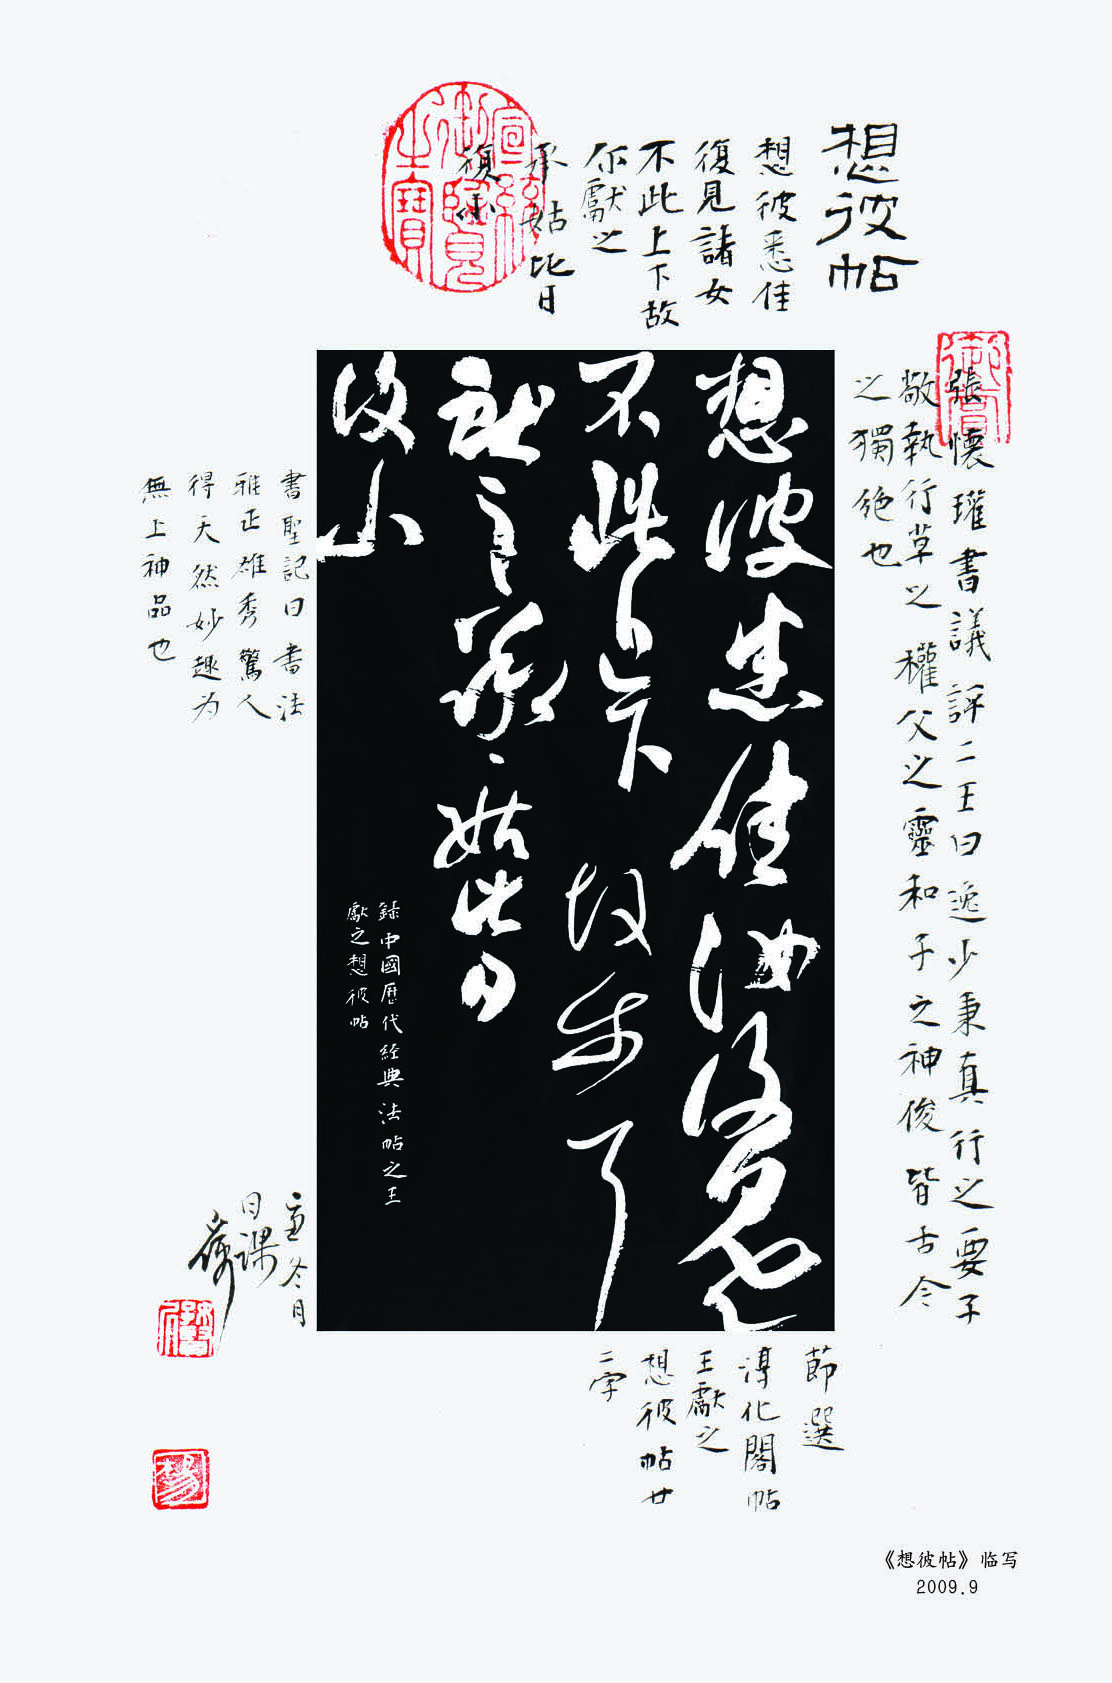 想彼帖
想彼悉佳
復見諸女
不此上下故
尔獻之
承姑比日
復小
張懷瓘書議評二王曰逸少秉真行之要子
敬執行草之權父之靈和子之神俊皆古今
之獨絶也
想彼悉佳
不此上下故
獻之承姑比日
復小
錄中國歷代經典法帖之王
獻之想彼帖
書聖記曰書法
雅正雄秀驚人
得天然妙趣为
無上神品也
冬月
日課
節選
淳化閣帖
王獻之
想彼帖廿
二字
《想彼帖》临写
2009.9